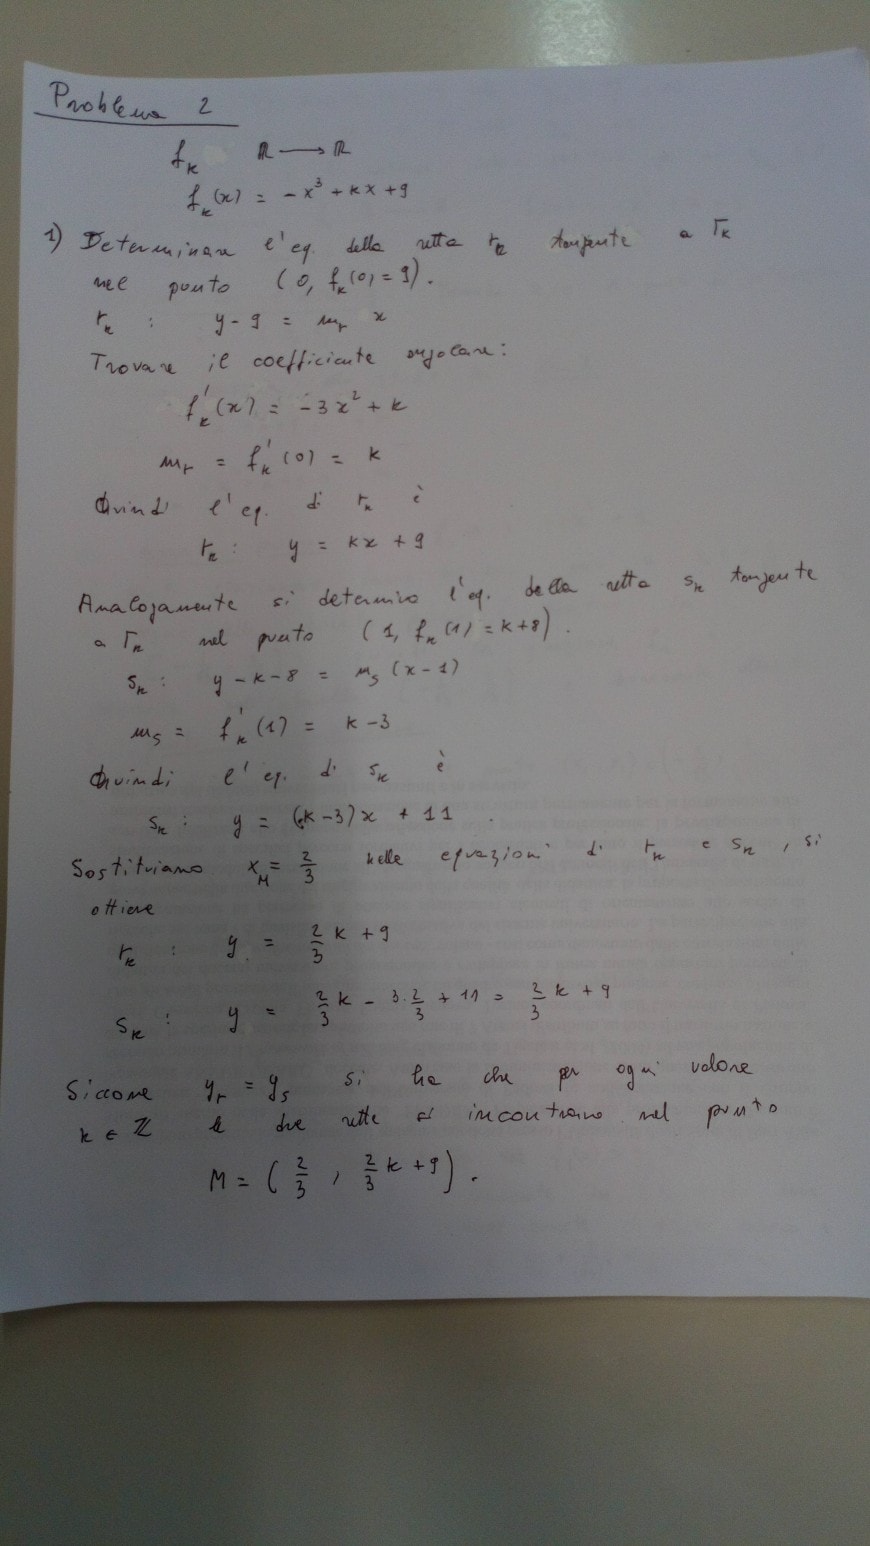 Problema 2
f_k ℝ ⟶ ℝ
f_k(x) = -x³ + kx + 9
1) Determinare l'eq. della retta r_k tangente a Γ_k
nel punto (0, f_k(0) = 9).
r_k : y - 9 = m_r x
Trovare il coefficiente angolare:
f'_k(x) = -3x² + k
m_r = f'_k(0) = k
Quindi l'eq. di r_k è
r_k : y = kx + 9
Analogamente si determina l'eq. della retta s_k tangente
a Γ_k nel punto (1, f_k(1) = k+8).
s_k : y - k - 8 = m_s (x - 1)
m_s = f'_k(1) = k - 3
Quindi l'eq. di s_k è
s_k : y = (k-3)x + 11.
Sostituiamo x_M = 2/3 nelle equazioni di r_k e s_k, si
ottiene
r_k : y = 2/3 k + 9
s_k : y = 2/3 k - 3·2/3 + 11 = 2/3 k + 9
Siccome y_r = y_s si ha che per ogni valore
k ∈ ℤ le due rette si incontrano nel punto
M = (2/3, 2/3 k + 9).